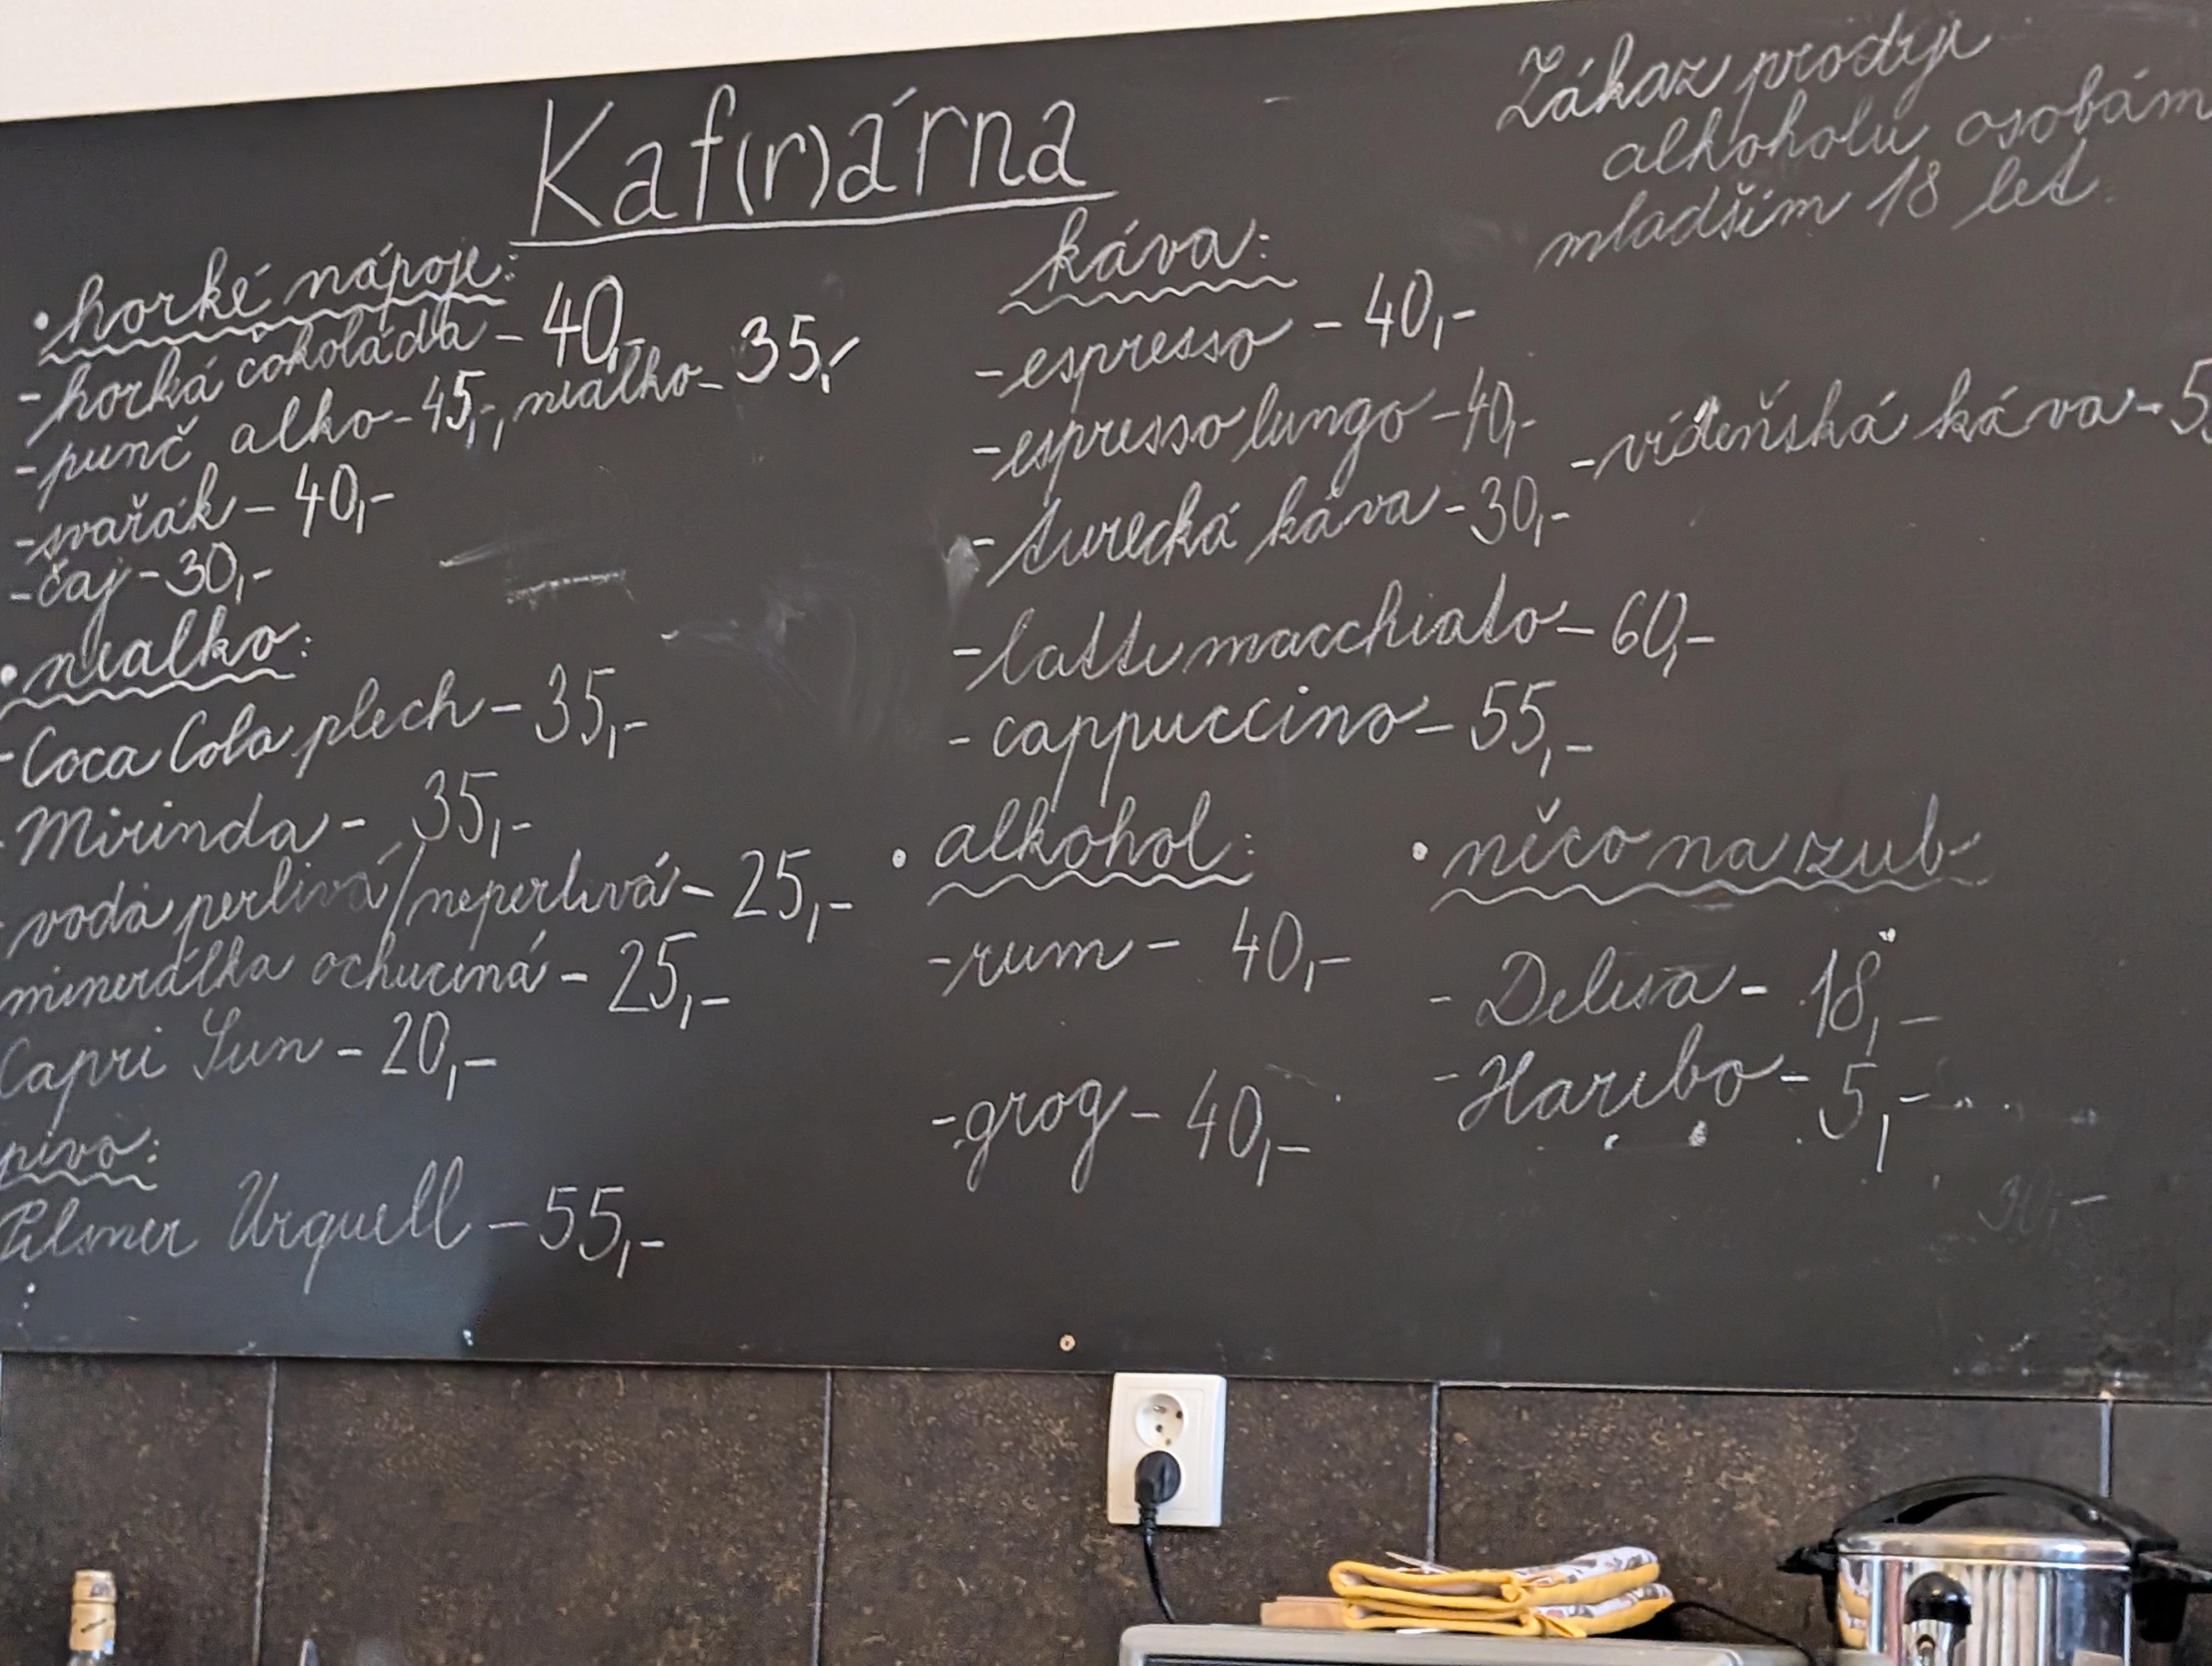 Kaf(r)árna
Zákaz prodeje
alkoholu osobám
mladším 18 let.
• horké nápoje:
- horká čokoláda - 40,-
- punč alko - 45,-, nealko - 35,-
- svařák - 40,-
- čaj - 30,-
• nealko:
- Coca Cola plech - 35,-
- Mirinda - 35,-
- voda perlivá/neperlivá - 25,-
minerálka ochucená - 25,-
Capri Sun - 20,-
pivo:
Pilsner Urquell - 55,-
káva:
- espresso - 40,-
- espresso lungo - 40,-
- turecká káva - 30,-
- latte macchiato - 60,-
- cappuccino - 55,-
- vídeňská káva - 5
• alkohol:
- rum - 40,-
- grog - 40,-
• něco na zub
- Delisa - 18,-
- Haribo - 5,-
30,-